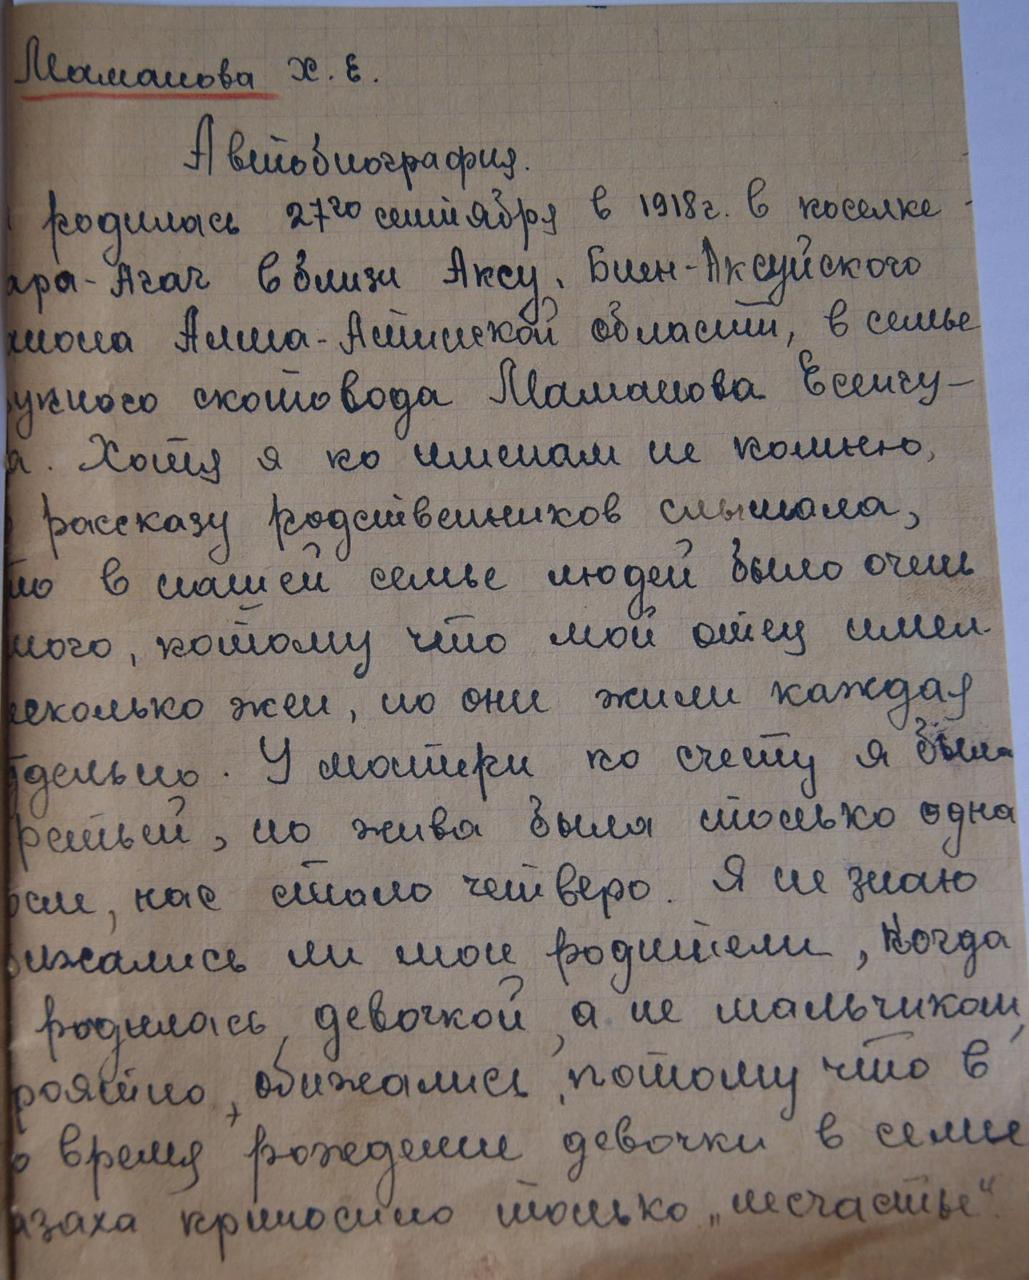 Маманова Х. Е.
Автобиография.
родилась 27го сентября в 1918г. в поселке
ара-Агач вблизи Аксу, Биен-Аксуйского
айона Алма-Атинской области, в семье
рупного скотовода Маманова Есенгу-
а. Хотя я по именам не помню,
о рассказу родственников слышала,
то в нашей семье людей было очень
много, потому что мой отец имел
несколько жен, но они жили каждая
тдельно. У матери по счету я была
ретьей, но жива была только одна
осле, нас стало четверо. Я не знаю
бижались ли мои родители, когда
родилась девочкой, а не мальчиком,
роятно, обижались, потому что в
о время рождение девочки в семье
азаха приносило только „несчастье“